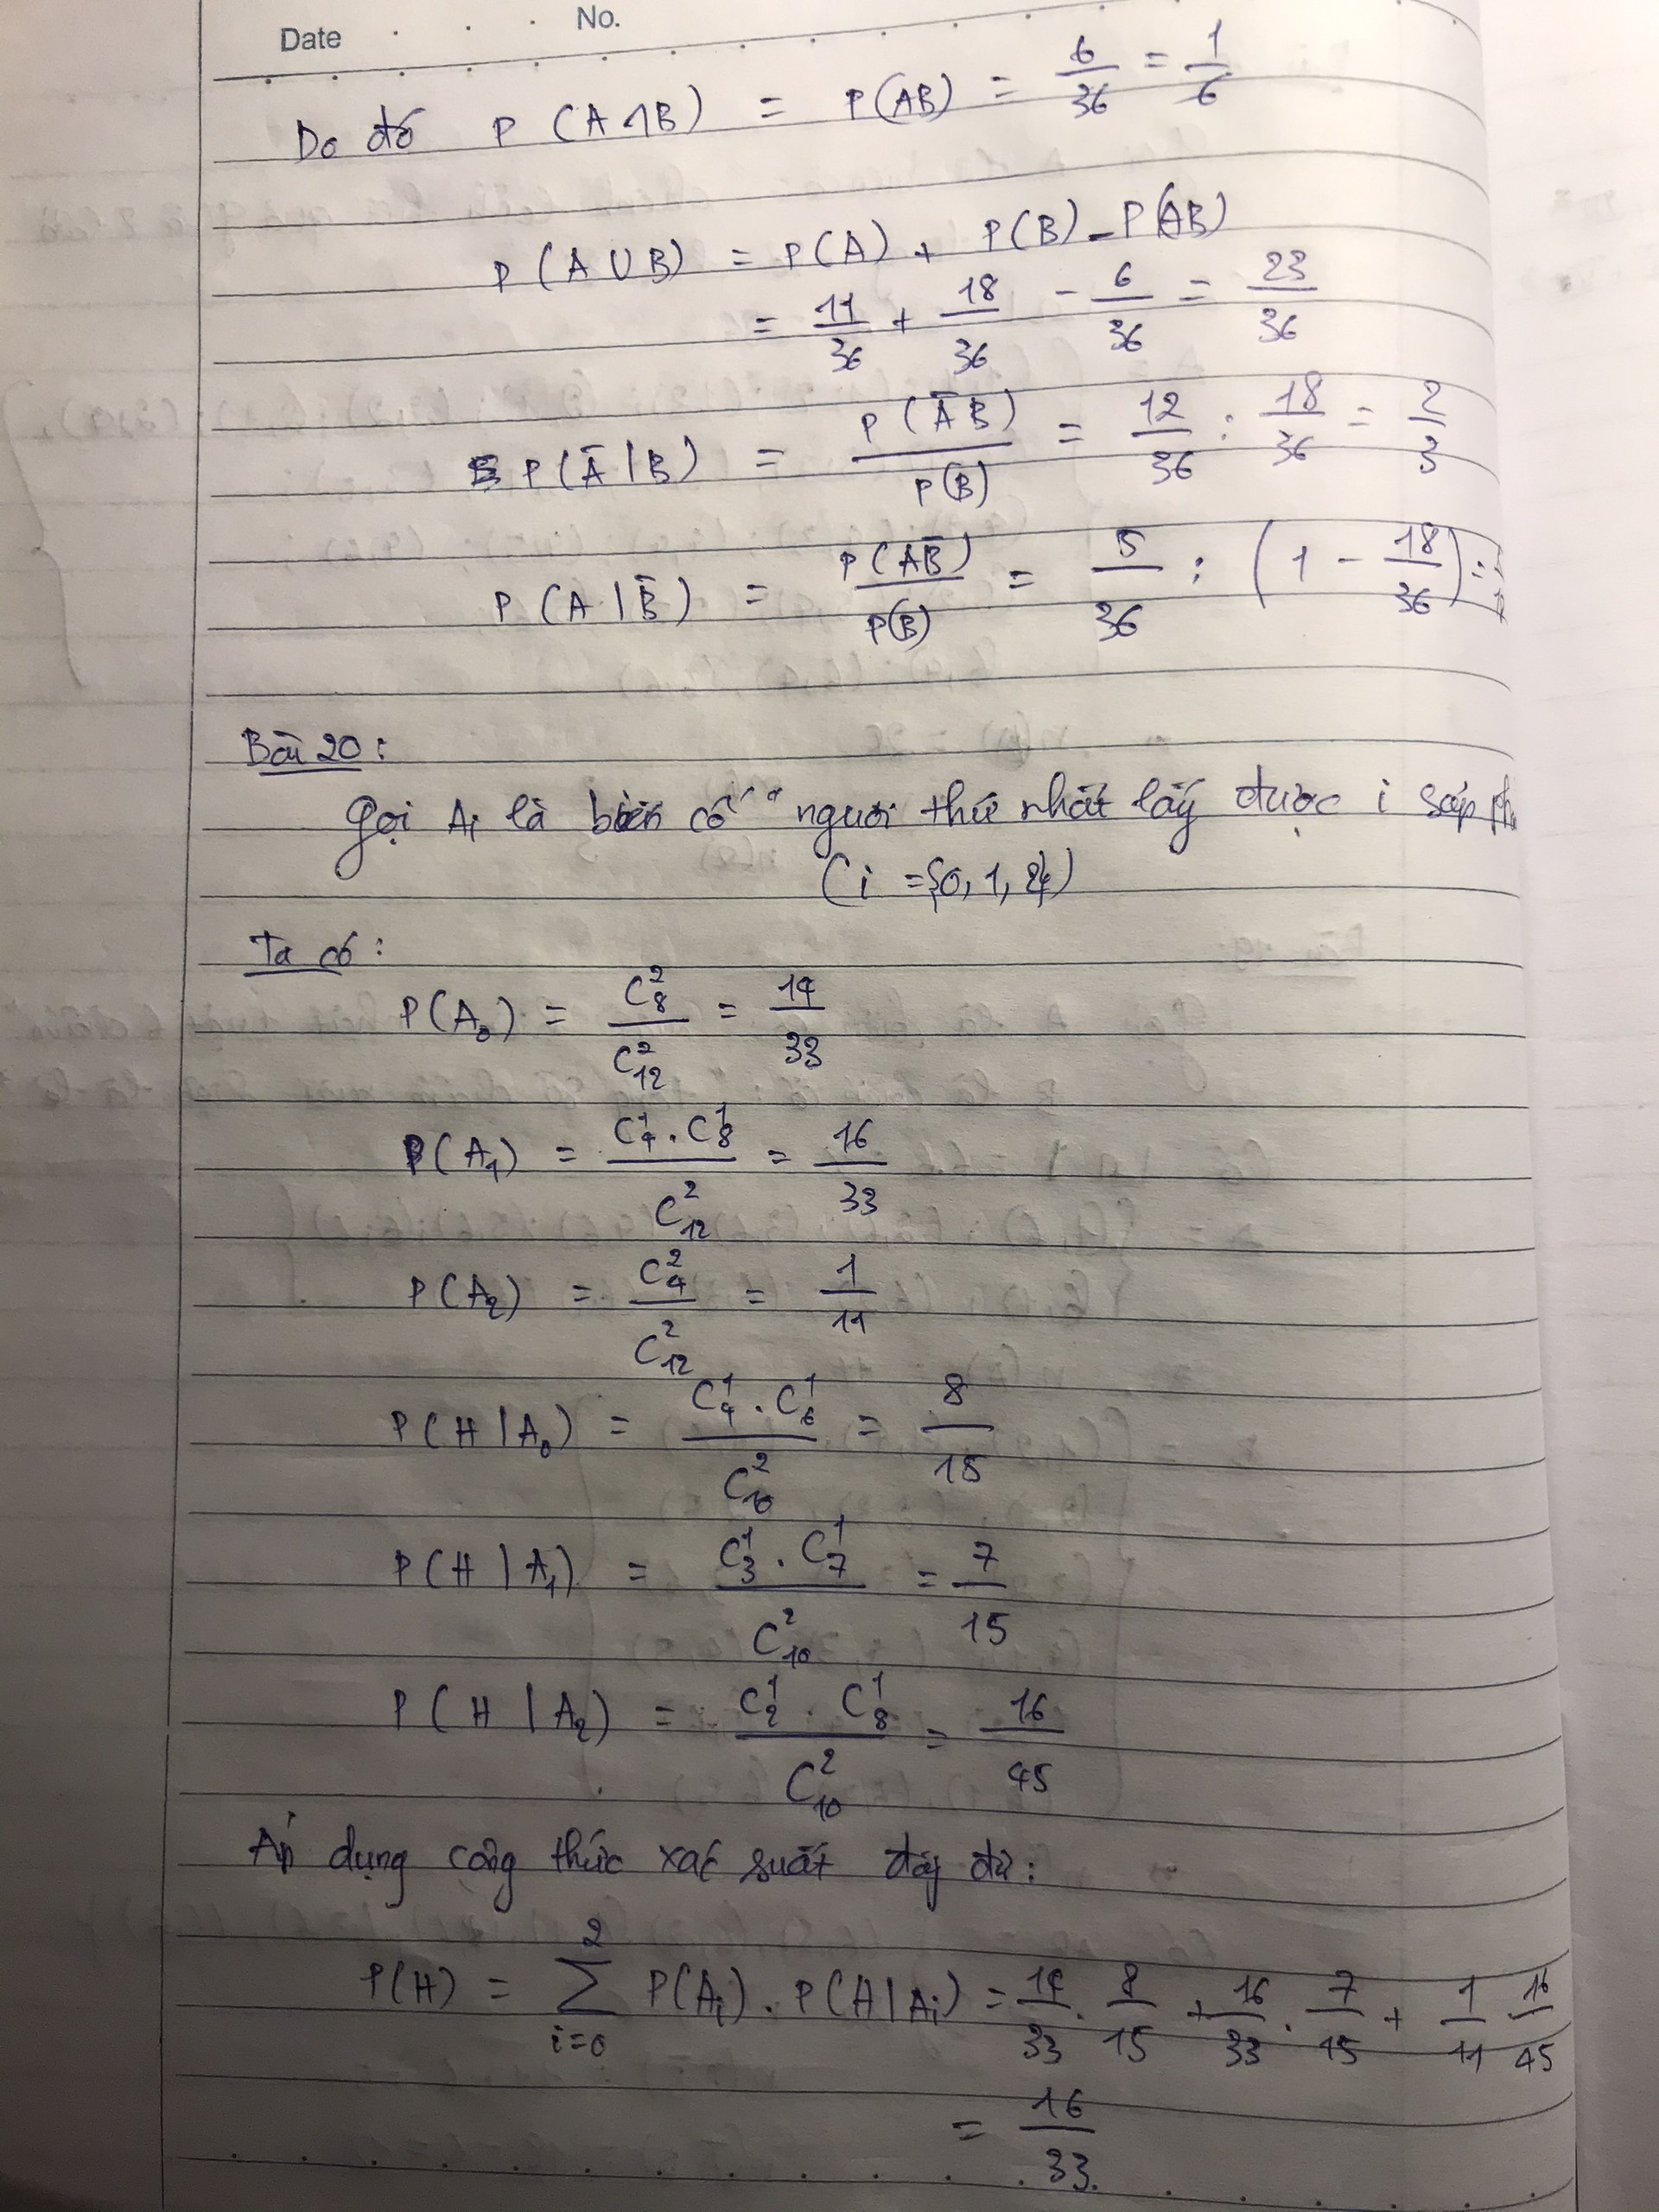 Date No.
Do đó P(A∩B) = P(AB) = 6/36 = 1/6
P(A∪B) = P(A) + P(B) - P(AB)
= 11/36 + 18/36 - 6/36 = 23/36
P(Ā|B) = P(ĀB)/P(B) = 12/36 : 18/36 = 2/3
P(A|B̄) = P(AB̄)/P(B) = 5/36 : (1 - 18/36) =
Bài 20:
Gọi Ai là biến cố " người thứ nhất lấy được i sáp
(i = {0, 1, 2})
Ta có:
P(A₀) = C₈²/C₁₂² = 14/33
P(A₁) = C₄¹.C₈¹/C₁₂² = 16/33
P(A₂) = C₄²/C₁₂² = 1/11
P(H|A₀) = C₄¹.C₆¹/C₁₀² = 8/15
P(H|A₁) = C₃¹.C₇¹/C₁₀² = 7/15
P(H|A₂) = C₂¹.C₈¹/C₁₀² = 16/45
Áp dụng công thức xác suất đầy đủ:
P(H) = ∑_{i=0}^{2} P(Ai).P(H|Ai) = 14/33 . 8/15 + 16/33 . 7/15 + 1/11 16/45
= 16/33.